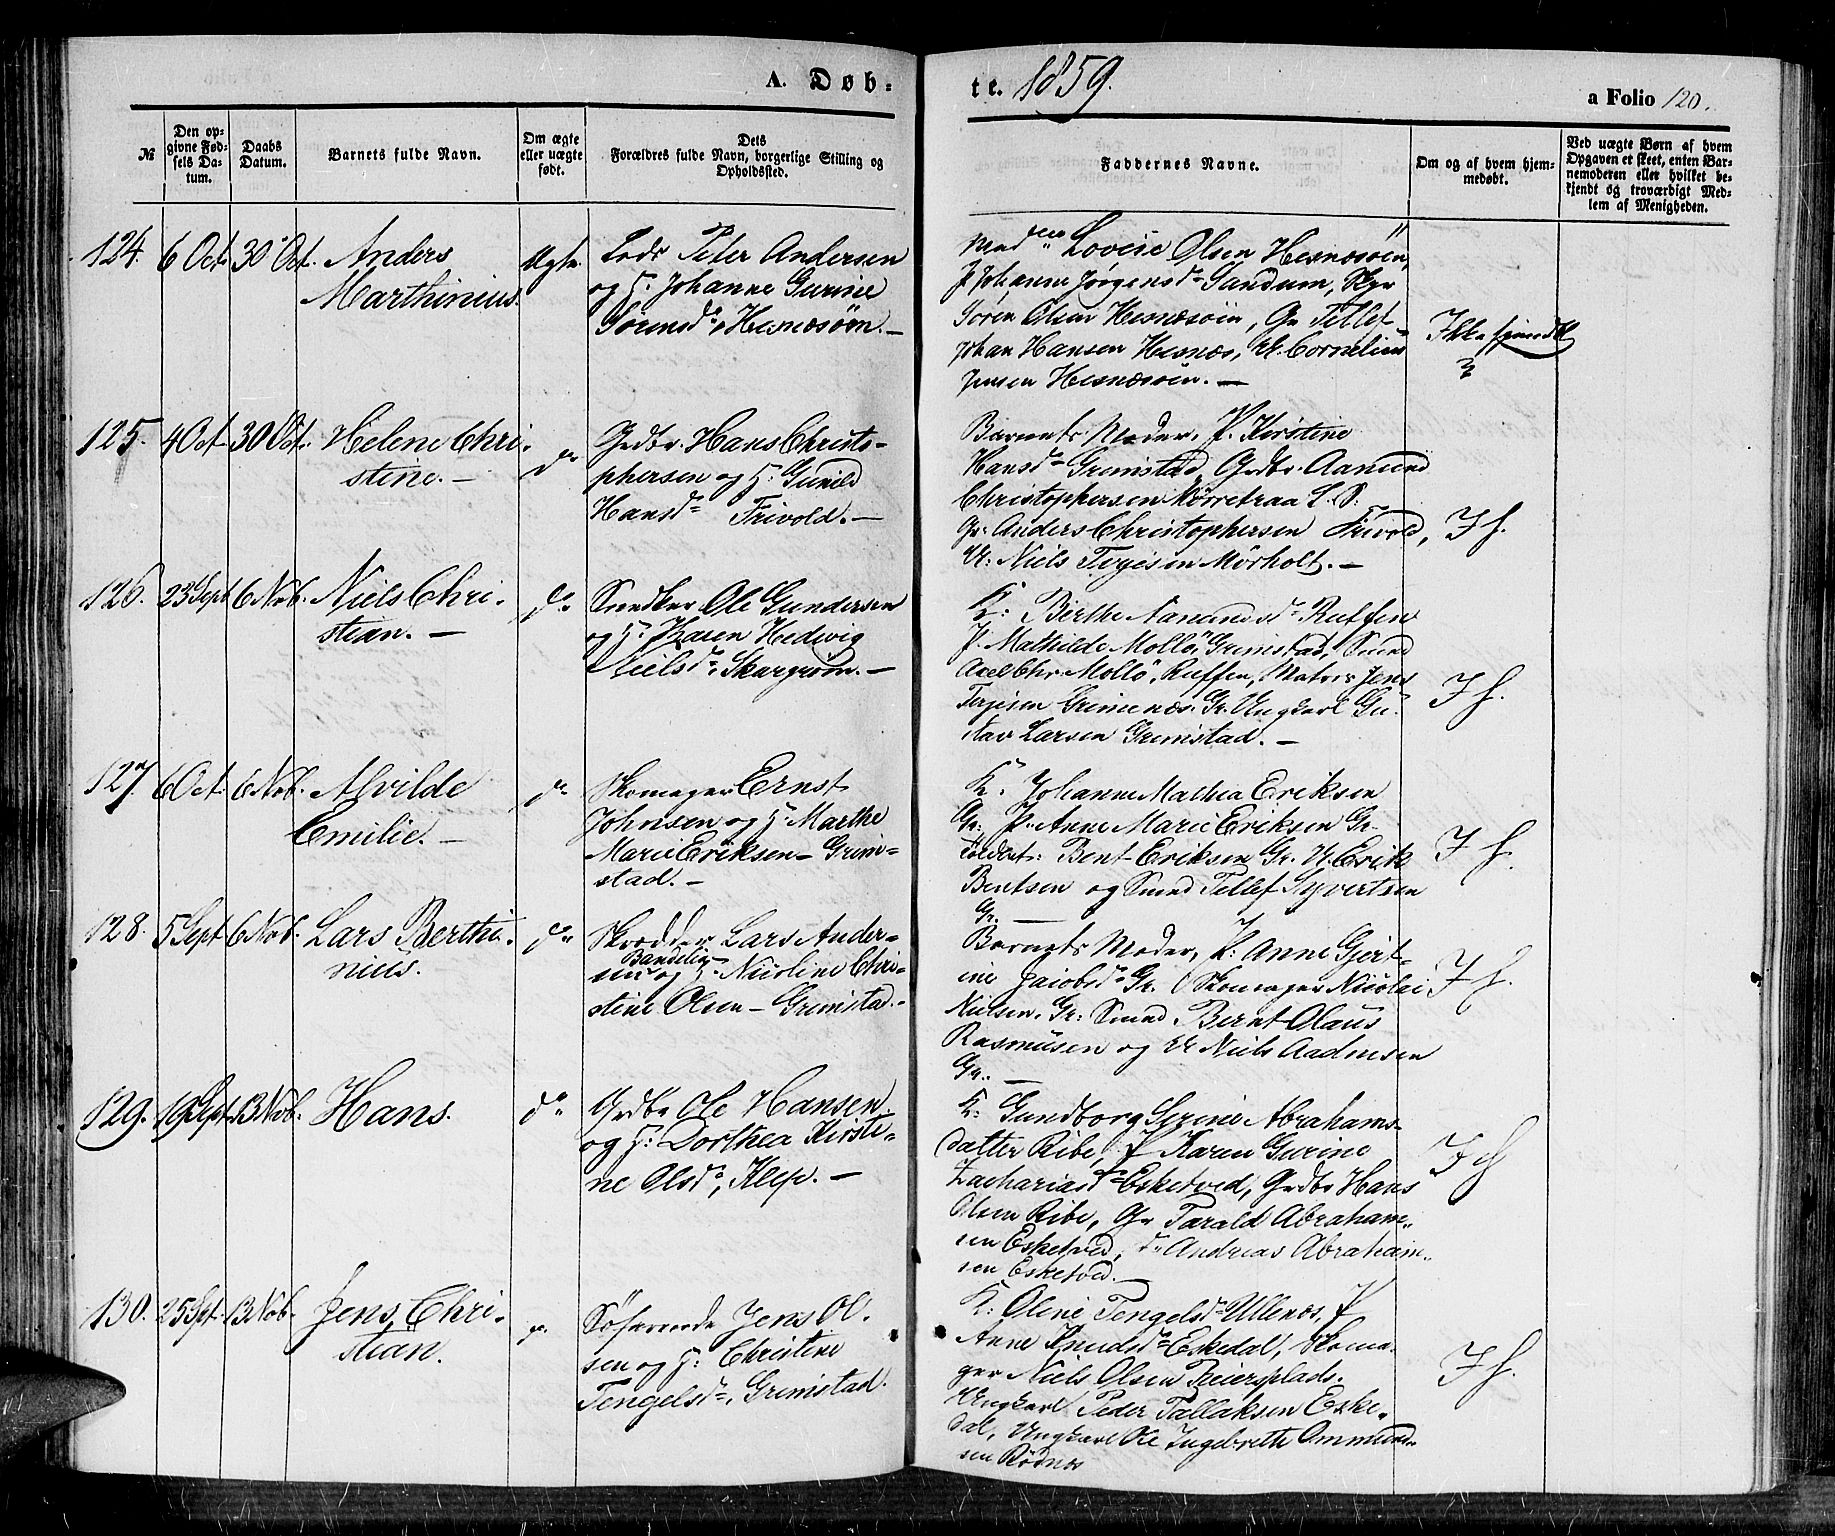 A. Døb-
te. 1859.
a Folio 120.
№
Den op-
givne Fød-
sels Da-
tum.
Daabs
Datum.
Barnets fulde Navn.
Om ægte
eller uægte
født.
Dets
Forældres fulde Navn, borgerlige Stilling og
Opholdssted.
Faddernes Navne.
Om og af hvem hjem-
medøbt.
Ved uægte Børn af hvem
Opgaven er skeet, enten Bar-
nemoderen eller hvilket be-
kjendt og troværdigt Med-
lem af Menigheden.
124. 6 Oct. 30 Oct. Anders
Marthinius.
Ægte.
Lods Peter Andersen
og H. Johanne Gurine
Sørensd. Hesnæsøen. —
Olsen Hesnæsøen,
P Johanne Jørgensd
Søren Olsen Hesnæsøen, Gr Tellef
Johan Hansen Hesnæs, Uk. Cornelius
Jensen Hesnæsøen. —
125. 4 Oct. 30 Oct. Helene Chri-
stine. —
do
Grdbr. Hans Christo-
phersen og H. Gunild
Hansd. Frivold. —
Barnets Moder, P. Kirstine
Hansd. Grimstad, Grdbr. Aamund
Christophersen Nørretraa L. S.
Gr. Anders Christophersen Frivold,
Uk: Niels Terjesen Mørholt. —
I H.
126. 23 Sept 6 Nob. Niels Chri-
stian. —
do
Snedker Ole Gundersen
og H. Karen Hedvig
Nielsd.
K: Birthe
P. Mathilde Grimstad, Smed
Axel Chr. Matros Jens
Terjesen Grimenæs. Gr. Ungkarl Gu-
stav Larsen Grimstad. —
I H.
127. 6 Oct. 6 Nob. Alvilde
Emilie. —
do
Skomager Ernst
Johnsen og H. Marthe
Marie Eriksen Grim-
stad. —
K. Johanne Mathea Eriksen
Gr. P. Anne Marie Eriksen Gr.
Bent Eriksen Gr. Uk. Erik
Bentsen og Smed Tellef Syvertsen
Gr. —
I H.
128. 5 Sept 6 Nob. Lars Berthi-
nius.
do
Skrædder Lars Ander-
sen og H. Nicoline Chri-
stine Olsen — Grimstad. -
Barnets Moder, P: Anne Gjert-
ine Jacobsd. Gr. Skomager Nicolai
Nielsen. Gr: Smed Bernt Olaus
Rasmusen og Uk Niels Aadnesen
Gr. —
I H.
129. 19 Sept. 13 Nob. Hans.
do
Grdbr Ole Hansen
og H: Dorthea Kirsti-
ne Olsd, Klep. —
K: Gundborg Serine Abrahams-
datter Ribe, P Karen Gurine
Zachariasd Esketved, Grdbr Hans
Olsen Ribe, Gr Tarald Abraham-
sen Esketved, do Andreas Abraham-
sen Esketved. —
I H
130. 25 Sept. 13 Nob. Jens Chri-
stian.
Søfarende Jens Ol-
sen og H: Christine
Tengelsd. Grimstad.
K: Oline Tengelsd. Ullenæs, P
Anne Knudsd. Eskedal, Skoma-
ger Niels Olsen Beiersplads.
Ungkarl Peder Tallaksen Eske-
dal, Ungkarl Ole Ingebreth Ommund-
sen Rødnæs
I H.